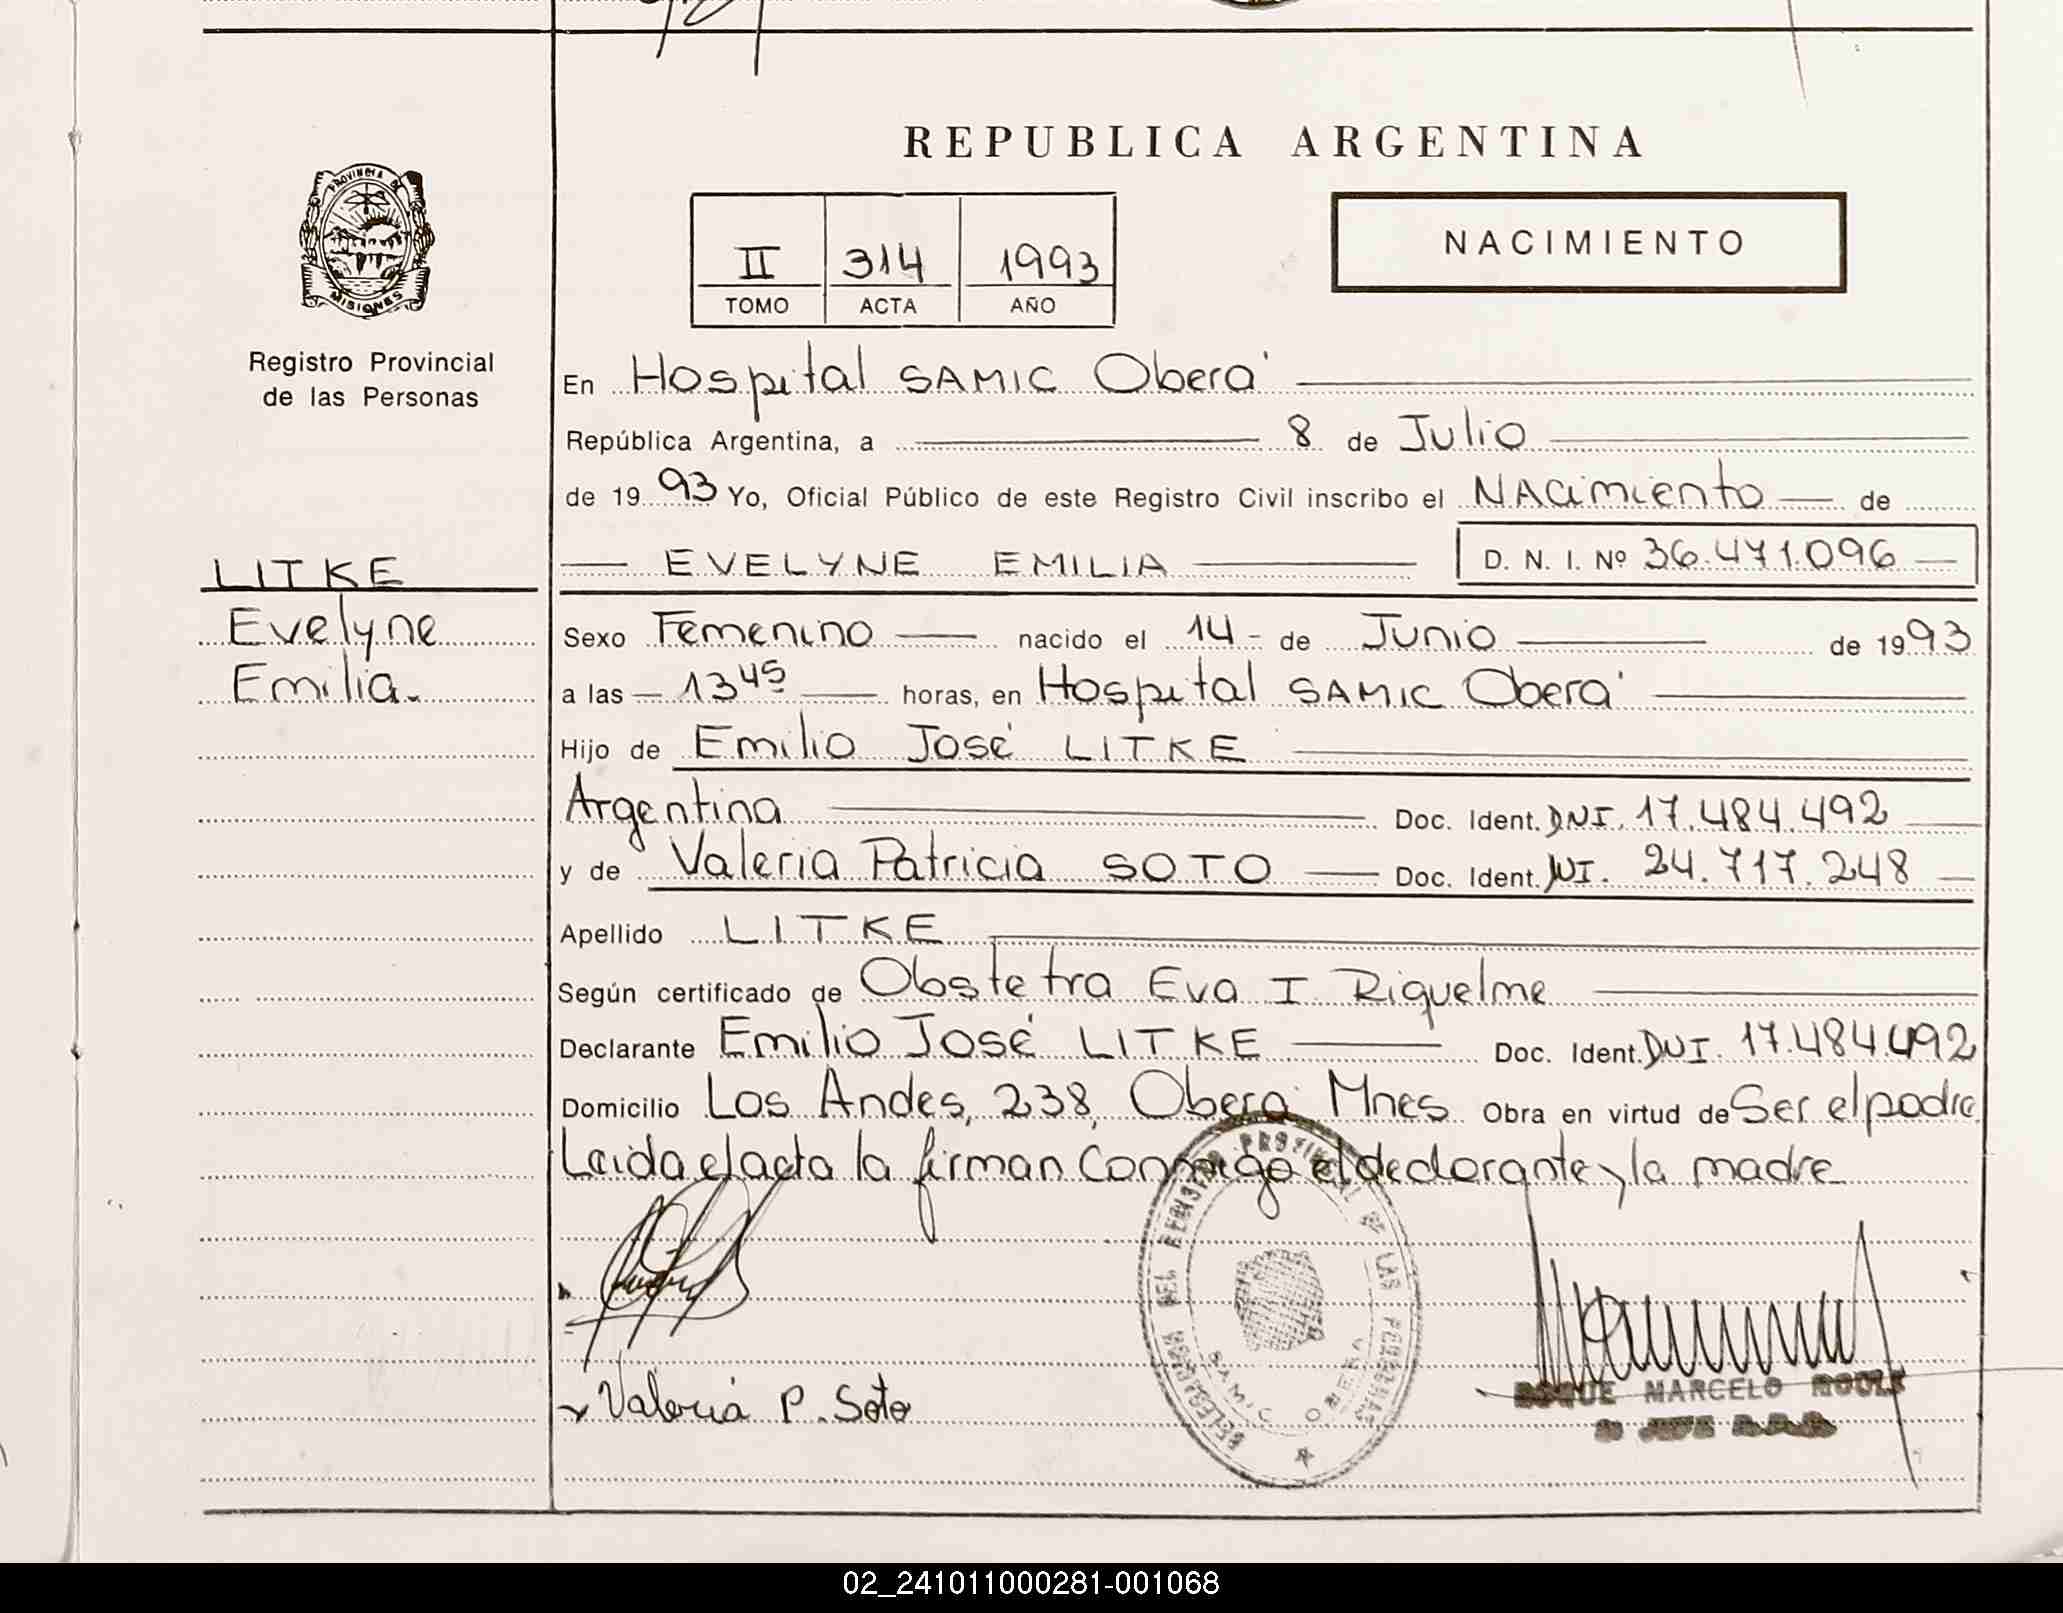 REPUBLICA ARGENTINA
PROVINCIA DE
MISIONES
Registro Provincial
de las Personas
II 314 1993
TOMO ACTA AÑO
NACIMIENTO
En Hospital SAMIC Oberá
República Argentina, a 8 de Julio
de 1993 Yo, Oficial Público de este Registro Civil inscribo el NAcimiento de
EVELYNE EMILIA D. N. I. Nº 36.471.096
LITKE
Evelyne
Emilia.
Sexo Femenino nacido el 14 de Junio de 1993
a las 13 45 horas, en Hospital SAMIC Oberá
Hijo de Emilio José LITKE
Argentina Doc. Ident. DNI. 17.484.492
y de Valeria Patricia SOTO Doc. Ident. NI. 24.717.248
Apellido LITKE
Según certificado de Obstetra Eva I Riquelme
Declarante Emilio José LITKE Doc. Ident. DNI. 17.484.492
Domicilio Los Andes, 238, Oberá Mnes. Obra en virtud de Ser el padre
Leida el acta la firman Conmigo el declarante y la madre
DELEGACION DEL REGISTRO PROVINCIAL DE LAS PERSONAS
SAMIC OBERA
Valeria P. Soto
ROQUE MARCELO
02_241011000281-001068